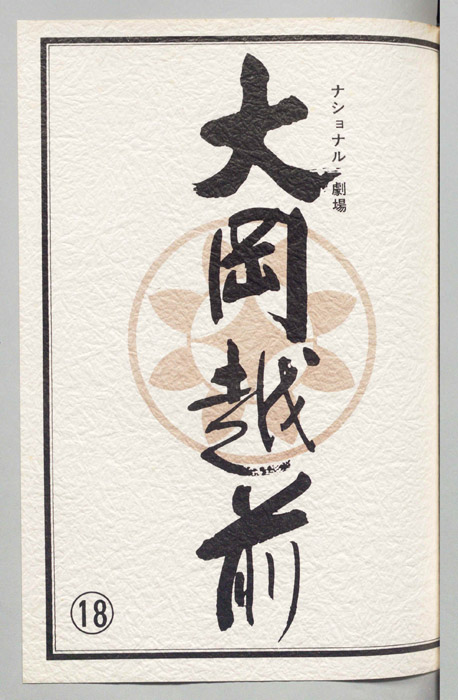 ナショナル劇場
大岡越前
⑱